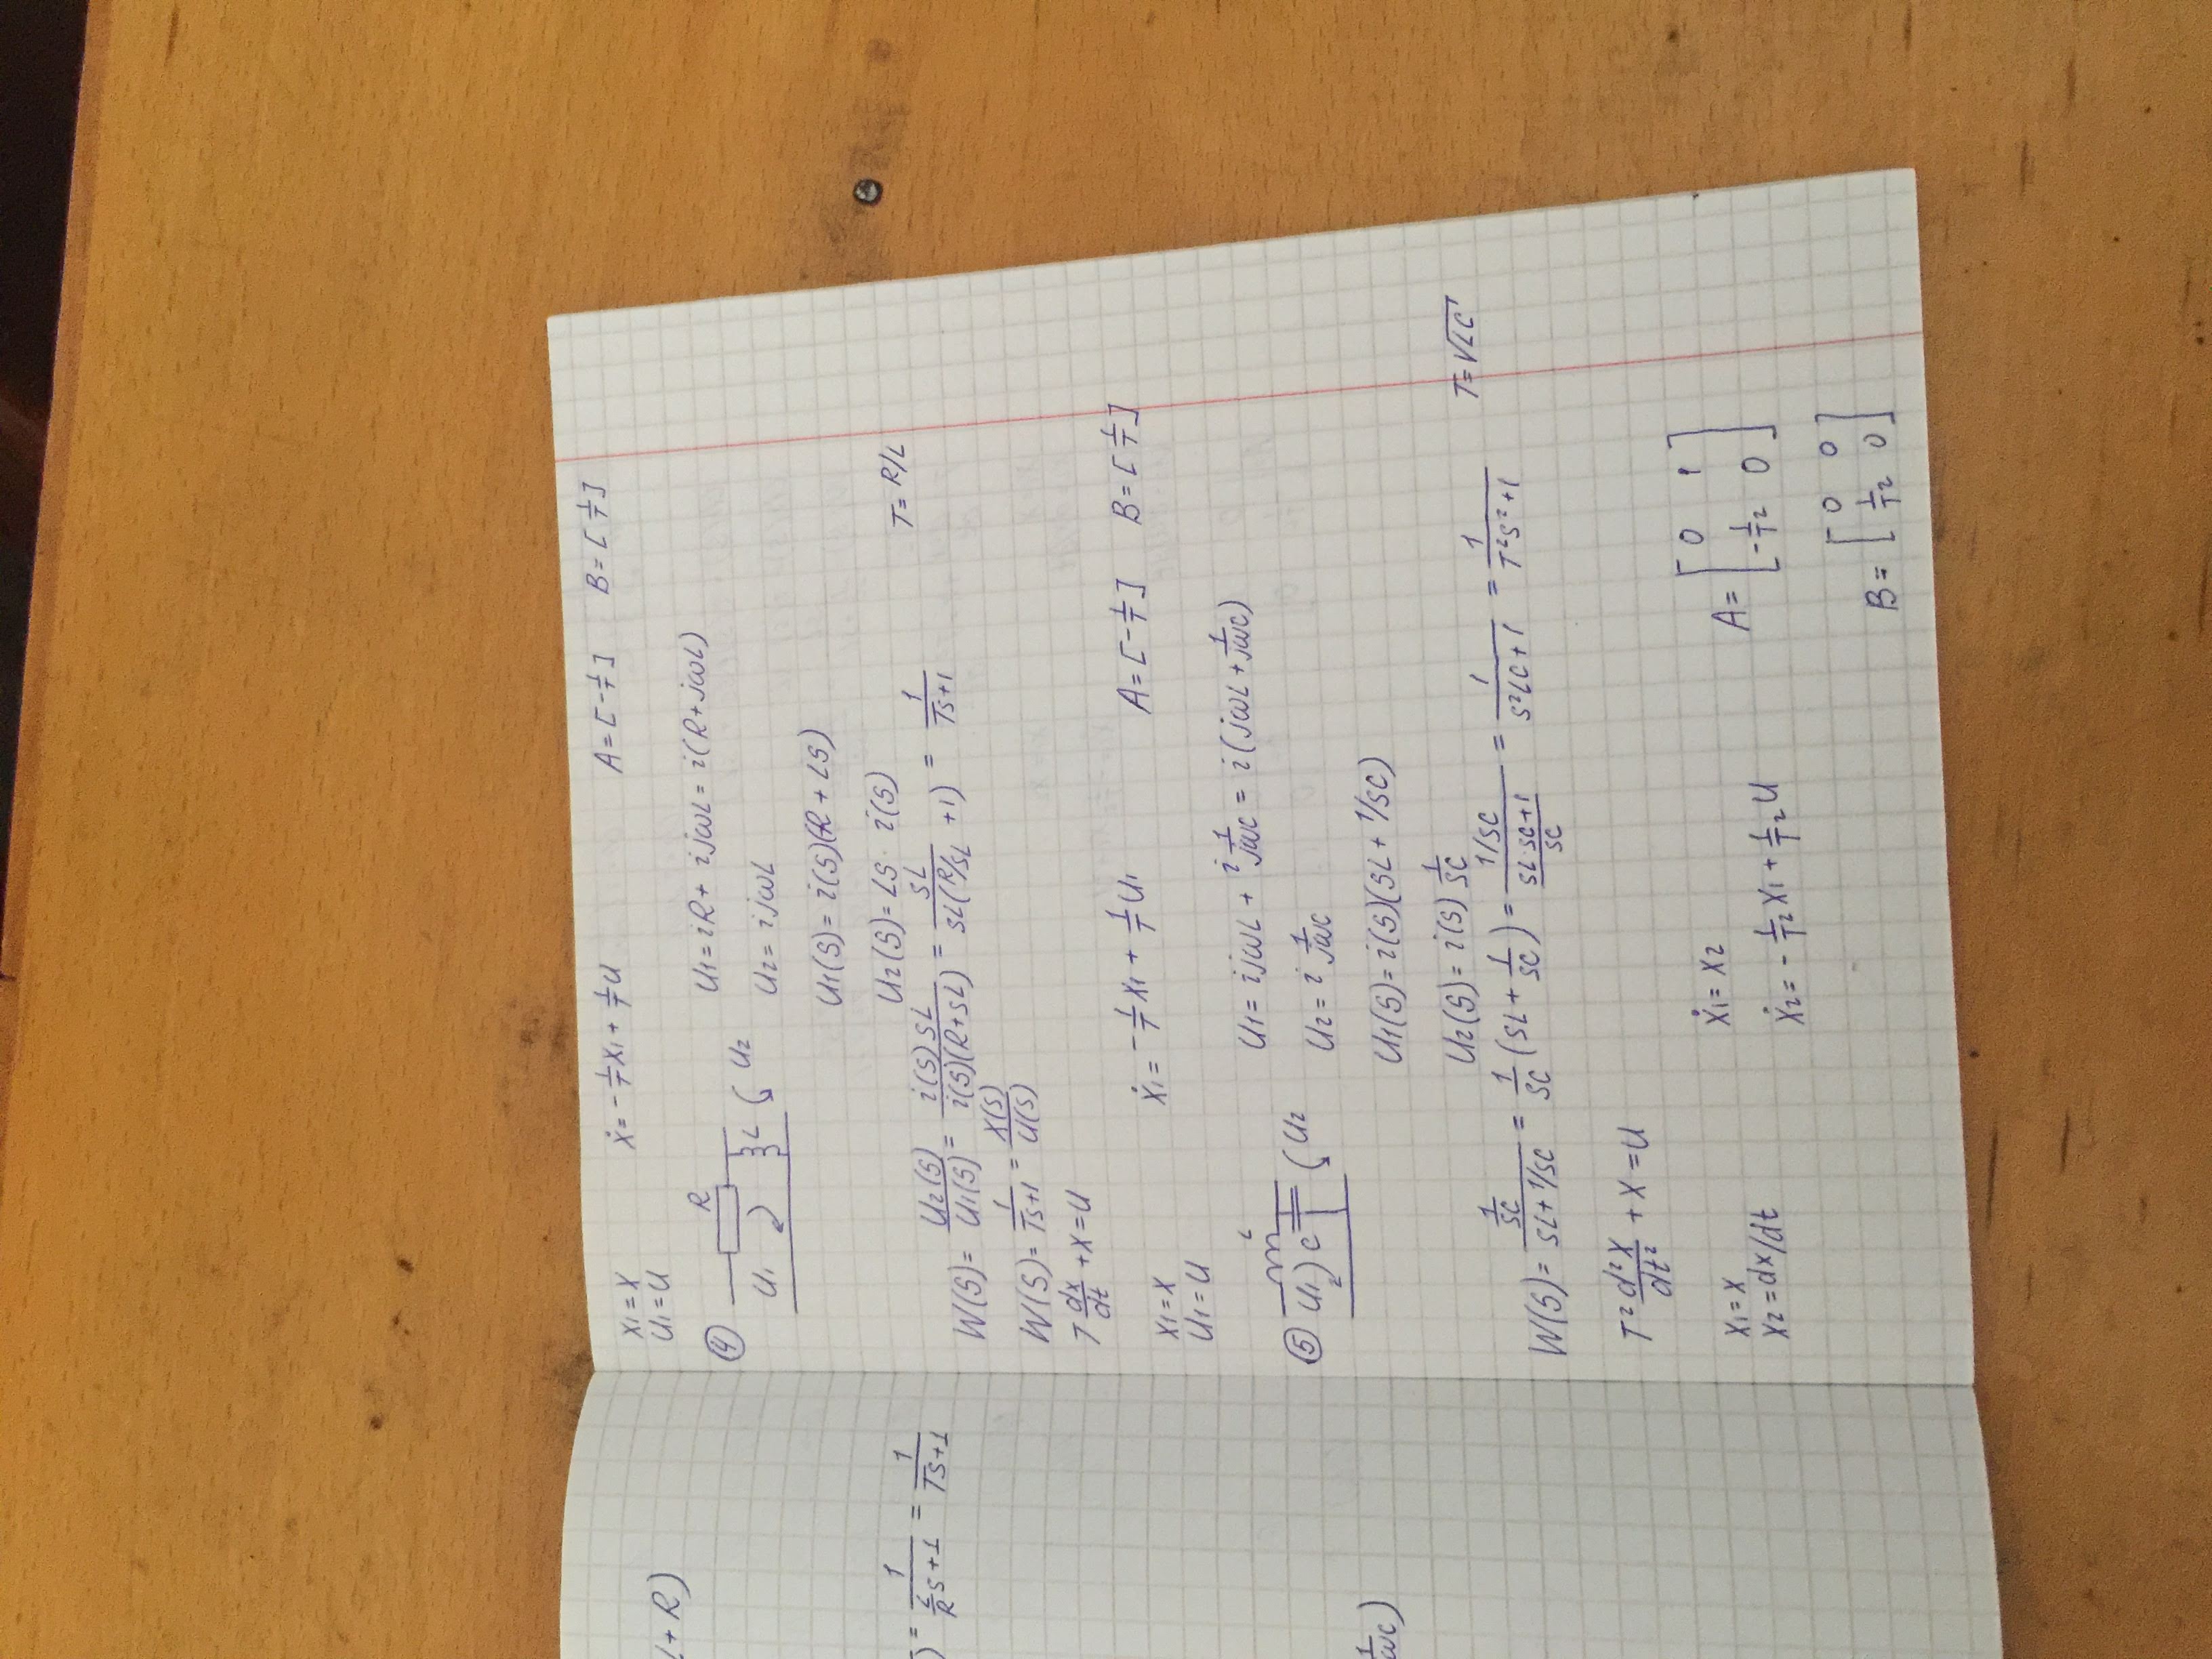 L+R)
) = 1/(L/R S+1) = 1/(TS+1)
1/ωC)
X1 = X    Ẋ = -1/T X1 + 1/T U    A = [-1/T]    B = [1/T]
U1 = U
④ R L U1 U2
U1 = iR + ijωL = i(R+jωL)
U2 = ijωL
U1(S) = i(S)(R + LS)
U2(S) = LS · i(S)
W(S) = U2(S)/U1(S) = i(S)SL/(i(S)(R+SL)) = SL/(SL(R/SL + 1)) = 1/(TS+1)    T = R/L
W(S) = 1/(TS+1) = X(S)/U(S)
T dx/dt + X = U
X1 = X    Ẋ1 = -1/T X1 + 1/T U1    A = [-1/T]    B = [1/T]
U1 = U
⑤ L U1 C U2
U1 = ijωL + i 1/jωC = i(jωL + 1/jωC)
U2 = i 1/jωC
U1(S) = i(S)(SL + 1/SC)
U2(S) = i(S) 1/SC
W(S) = (1/SC)/(SL+1/SC) = 1/SC (SL + 1/SC) = (1/SC)/((SL·SC+1)/SC) = 1/(S²LC+1) = 1/(T²S²+1)    T = √LC
T² d²X/dt² + X = U
X1 = X    Ẋ1 = X2    A = [0 1
X2 = dx/dt    Ẋ2 = -1/T² X1 + 1/T² U    -1/T² 0]
B = [0 0
1/T² 0]